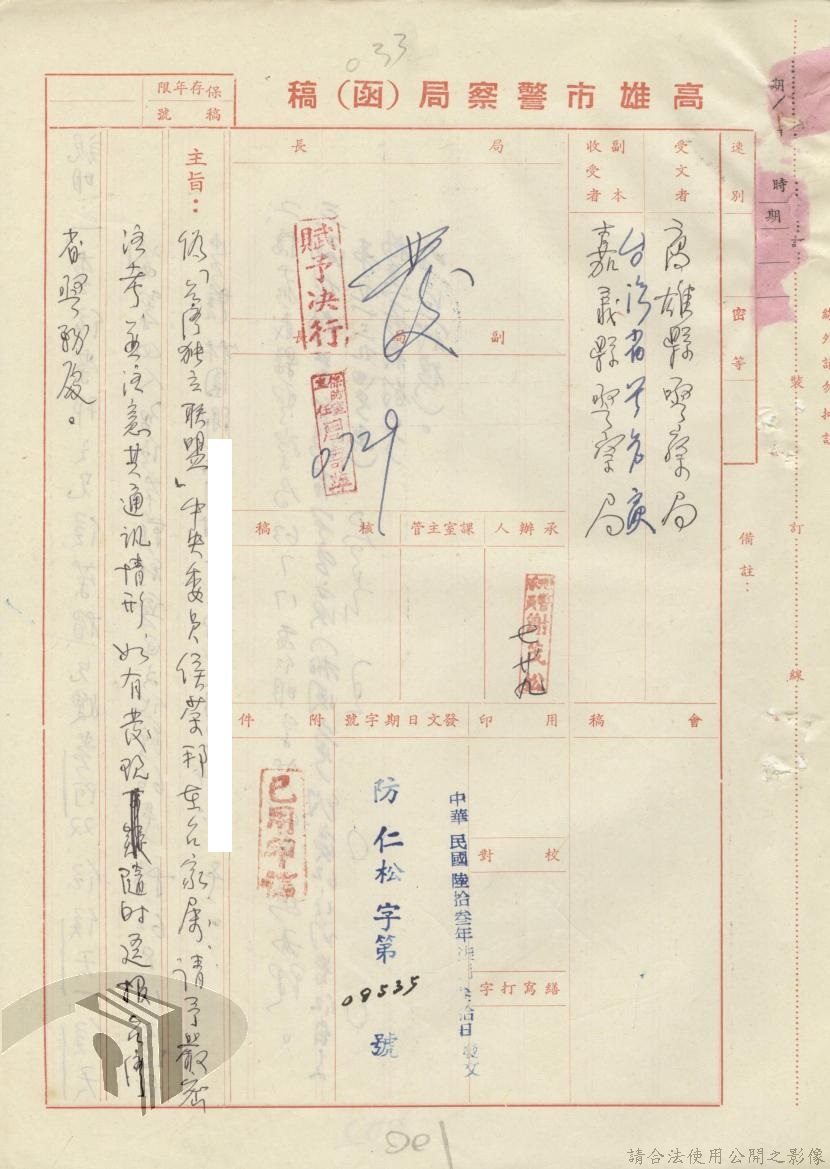 033
高雄市警察局（函）稿
保存年限
稿號
速別
密等
受文者
高雄縣警察局
副本收受者
台灣省警務處
嘉義縣警察局
備註：
局長
發
賦予決行
副局長
0729
承辦人
課室主管
核稿
七廿九
會稿
用印
發文日期字號
附件
中華民國陸拾叁年
拾日發文
防仁松字第
09535
號
已用印信
校對
繕寫打字
主旨：
偽「台灣獨立聯盟」中央委員侯榮邦在台家屬，請予嚴密
注考並注意其通訊情形，如有發現
隨時逕報台灣
省警務處。
時期
裝
訂
線
請合法使用公開之影像